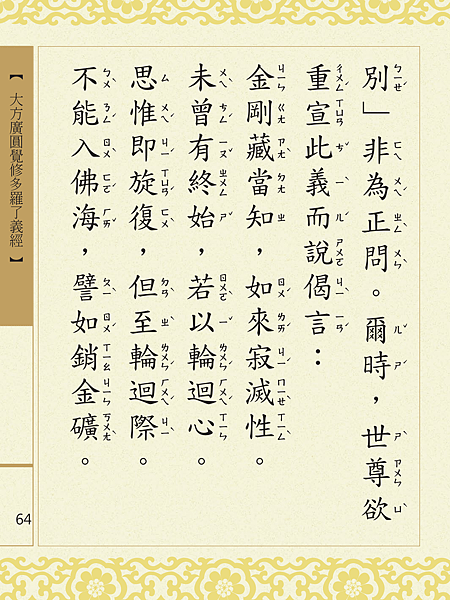 別」非為正問。爾時，世尊欲
重宣此義而說偈言：
金剛藏當知，如來寂滅性。
未曾有終始，若以輪迴心。
思惟即旋復，但至輪迴際。
不能入佛海，譬如銷金礦。
【大方廣圓覺修多羅了義經】
64